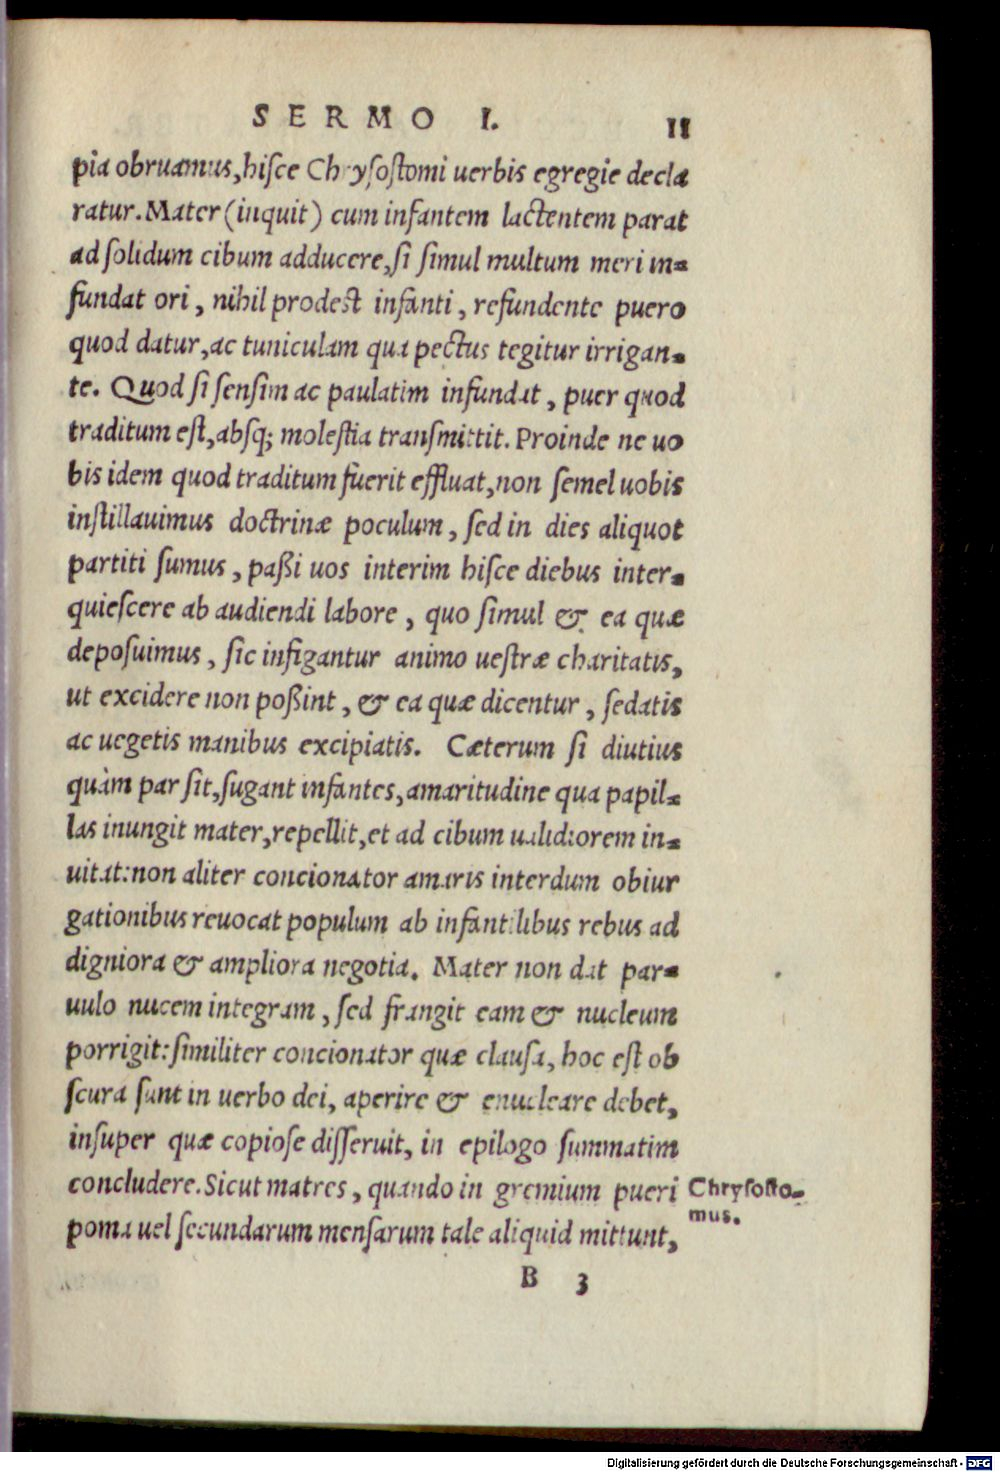 SERMO I. 11
pia obruamus, hisce Chrysostomi uerbis egregie decla
ratur. Mater (inquit) cum infantem lactentem parat
ad solidum cibum adducere, si simul multum meri in-
fundat ori, nihil prodest infanti, refundente puero
quod datur, ac tuniculam qua pectus tegitur irrigan-
te. Quod si sensim ac paulatim infundat, puer quod
traditum est, absq; molestia transmittit. Proinde ne uo
bis idem quod traditum fuerit effluat, non semel uobis
instillauimus doctrinæ poculum, sed in dies aliquot
partiti sumus, paßi uos interim hisce diebus inter-
quiescere ab audiendi labore, quo simul & ea quæ
deposuimus, sic infigantur animo uestræ charitatis,
ut excidere non poßint, & ea quæ dicentur, sedatis
ac uegetis manibus excipiatis. Cæterum si diutius
quàm par sit, sugant infantes, amaritudine qua papil-
las inungit mater, repellit, et ad cibum ualidiorem in-
uitat: non aliter concionator amaris interdum obiur
gationibus reuocat populum ab infantilibus rebus ad
digniora & ampliora negotia. Mater non dat par-
uulo nucem integram, sed frangit eam & nucleum
porrigit: similiter concionator quæ clausa, hoc est ob
scura sunt in uerbo dei, aperire & enucleare debet,
insuper quæ copiose disseruit, in epilogo summatim
concludere. Sicut matres, quando in gremium pueri
poma uel secundarum mensarum tale aliquid mittunt,
Chrysosto-
mus.
B 3
Digitalisierung gefördert durch die Deutsche Forschungsgemeinschaft - DFG